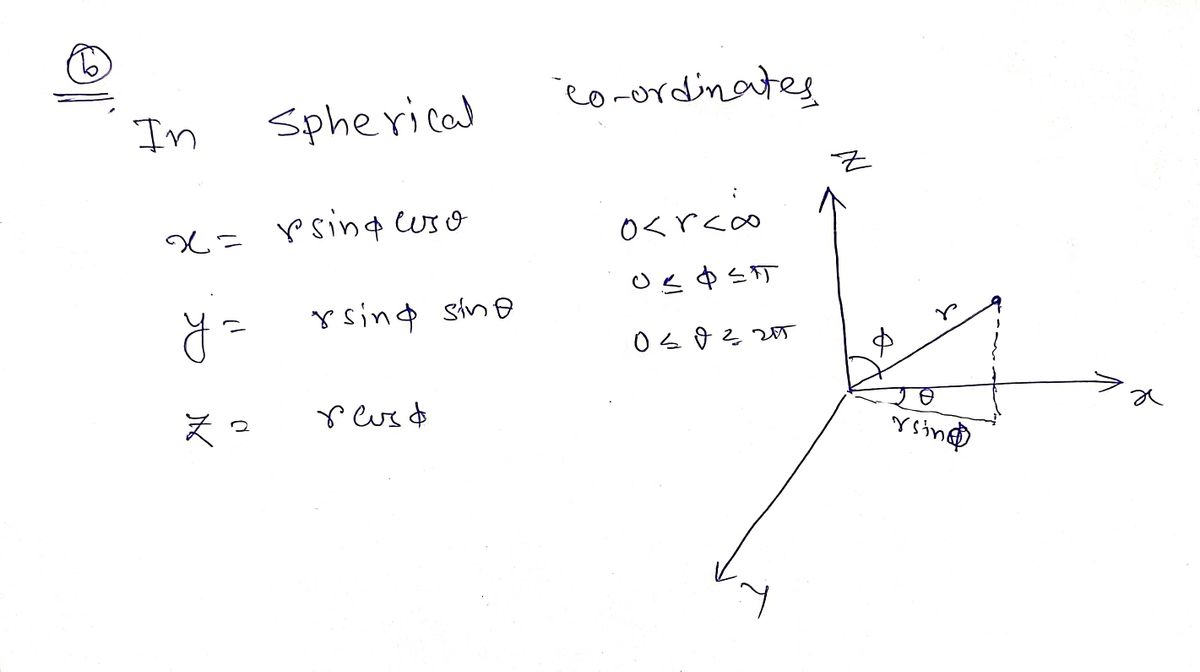 6
In Spherical co-ordinates
x = r sinϕ cosθ
0 < r < ∞
y = r sinϕ sinθ
0 ≤ ϕ ≤ π
z = r cosϕ
0 ≤ θ ≥ 2π
z
r
ϕ
θ
x
r sinϕ
y